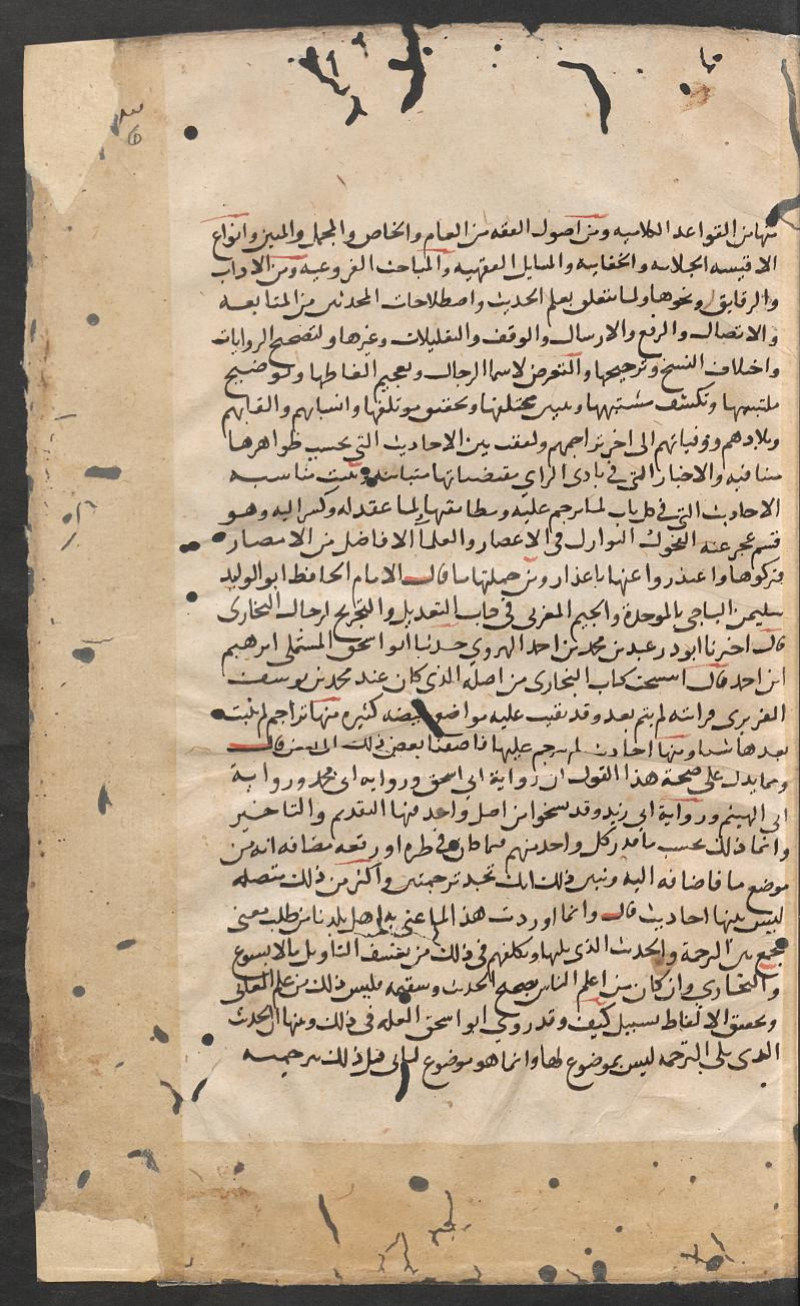 منها من القواعد الكلاميه ومن اصول الفقه من العام والخاص والمجمل والمبين وانواع
الاقيسه الجلاىه والخفاىيه والمسايل الفقهيه والمباحث الفروعيه ومن الاداب
والرقايق ونحوها ولما يتعلق بعلم الحديث واصطلاحات المحدثين من المتابعه
والاتصال والرفع والارسال والوقف والتعليقات وغيرها ولتصحيح الروايات
واختلاف النسخ وترجيحها والتعرض لاسما الرجال وتعجيم الفاظها وتوضيح
ملتبسها وتكشف مشتبهها وتبين مختلفها وتحقيق موتلفها وانسابهم والقابهم
وبلادهم ووفياتهم الى اخر تراجمهم ولفق بين الاحاديث التي بحسب ظواهرها
متنافيه والاخبار التي في بادى الراي مقتضياتها متباينه وبينت مناسبه
الاحاديث التي في كل باب لما ترجم عليه ومطابقتها لما عقد له وكسر اليه وهو
قسم عجز عنه الفحول البوازل في الاعصار والعلما الافاضل من الامصار
فتركوها واعتذروا عنها باعذار ومن جملتها ما قال الامام الحافظ ابو الوليد
سليمن الباجي بالموحدة والجيم المغربي في كتاب التعديل والتجريح لرجال البخارى
قال اخبرنا ابو ذر عبد بن محمد بن احمد الهروي حدثنا ابو اسحق المستملى ابرهيم
ابن احمد قال انتسخت كتاب البخارى من اصله الذى كان عند محمد بن يوسف
الفربرى فراىته لم يتم بعد وقد بقيت عليه مواضع مبيضه كثيره منها تراجم لم يثبت
بعدها شيا ومنها احاديث لم يترجم عليها فاضفنا بعض ذلك الى بعض قال
ومما يدل على صحة هذا القول ان رواية ابي اسحق ورواية ابي محمد ورواية
ابي الهيثم ورواية ابي زيد وقد نسخوا من اصل واحد فيها التقديم والتاخير
وانما ذلك بحسب ما قدر كل واحد منهم فيما كان في طره او رقعه مضافه انه من
موضع ما فاضافه اليه ويبين ذلك انك تجد ترجمتين واكثر من ذلك متصله
ليس بينها احاديث قال وانما اوردت هذا لما عنى به اهل بلدنا من طلب معنى
يجمع بين الترجمة والحديث الذى يليها وتكلفهم في ذلك من تعسف التاويل ما لا يسوغ
والبخاري وان كان من اعلم الناس بصحيح الحديث وسقيمه فليس ذلك من علم المعانى
وتحقيق الالفاظ بسبيل كيف وقد روى ابو اسحق العله في ذلك وبينها ان الحديث
الذى يلي الترجمه ليس بموضوع لها وانما هو موضوع لياتي قبل ذلك بترجمته